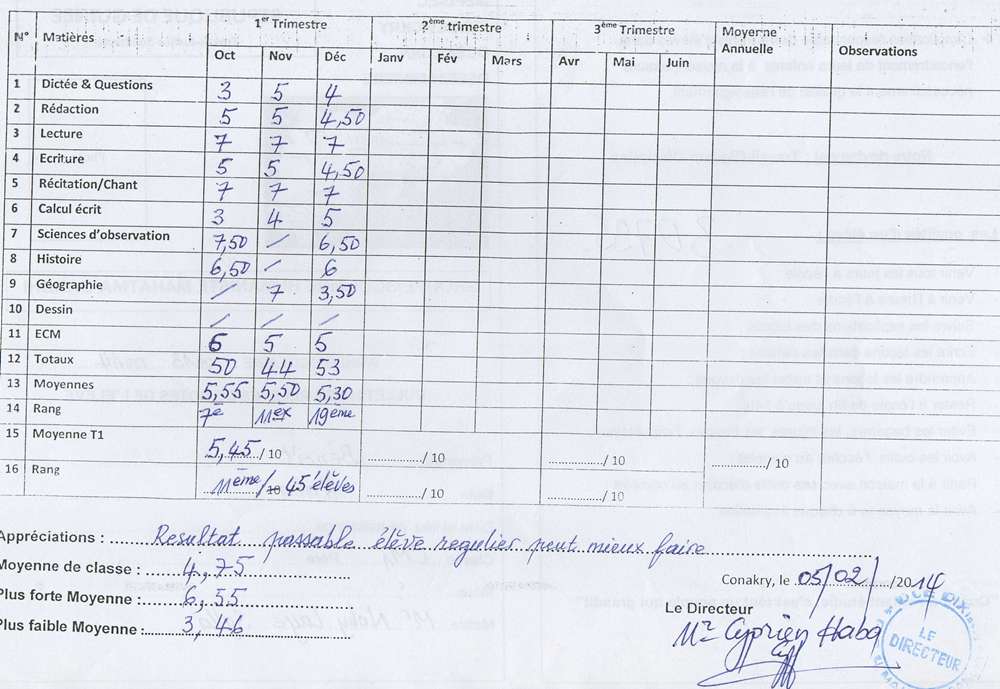 1er Trimestre 2ème trimestre 3ème Trimestre Moyenne Annuelle Observations
N° Matières Oct Nov Déc Janv Fév Mars Avr Mai Juin
1 Dictée & Questions 3 5 4
2 Rédaction 5 5 4,50
3 Lecture 7 7 7
4 Ecriture 5 5 4,50
5 Récitation/Chant 7 7 7
6 Calcul écrit 3 4 5
7 Sciences d'observation 7,50 / 6,50
8 Histoire 6,50 / 6
9 Géographie / 7 3,50
10 Dessin / / /
11 ECM 6 5 5
12 Totaux 50 44 53
13 Moyennes 5,55 5,50 5,30
14 Rang 7e 11ex 19ème
15 Moyenne T1 5,45 / 10 ............/ 10 ............/ 10 ............/ 10
16 Rang 11ème/10 45 élèves ............/ 10 ............/ 10
Appréciations : Resultat passable élève regulier peut mieux faire
Moyenne de classe : 4,75
Conakry, le 05/02/ /2014
Plus forte Moyenne : 6,55
Le Directeur
Plus faible Moyenne : 3,46
Mr Cyprien Haba
LE DIRECTEUR